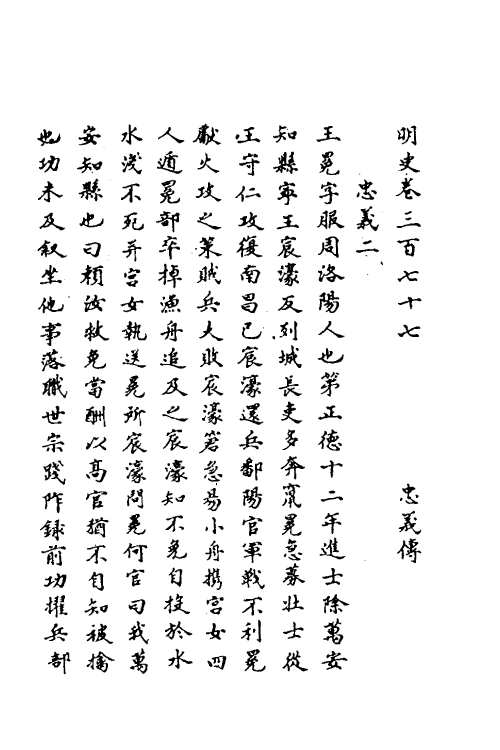 明史卷三百七十七　忠義傳
忠義二
王冕字服周洛陽人也第正德十二年進士除萬安
知縣寧王宸濠反列城長吏多奔竄冕急募壯士從
王守仁攻復南昌已宸濠還兵鄱陽官軍戰不利冕
獻火攻之策賊兵大敗宸濠窘急易小舟携宮女四
人遁冕部卒掉漁舟追及之宸濠知不免自投於水
水淺不死并宮女執送冕所宸濠問冕何官曰我萬
安知縣也曰頼汝救免當酬以高官猶不自知被擒
也功未及叙坐他事落職世宗踐阼録前功擢兵部